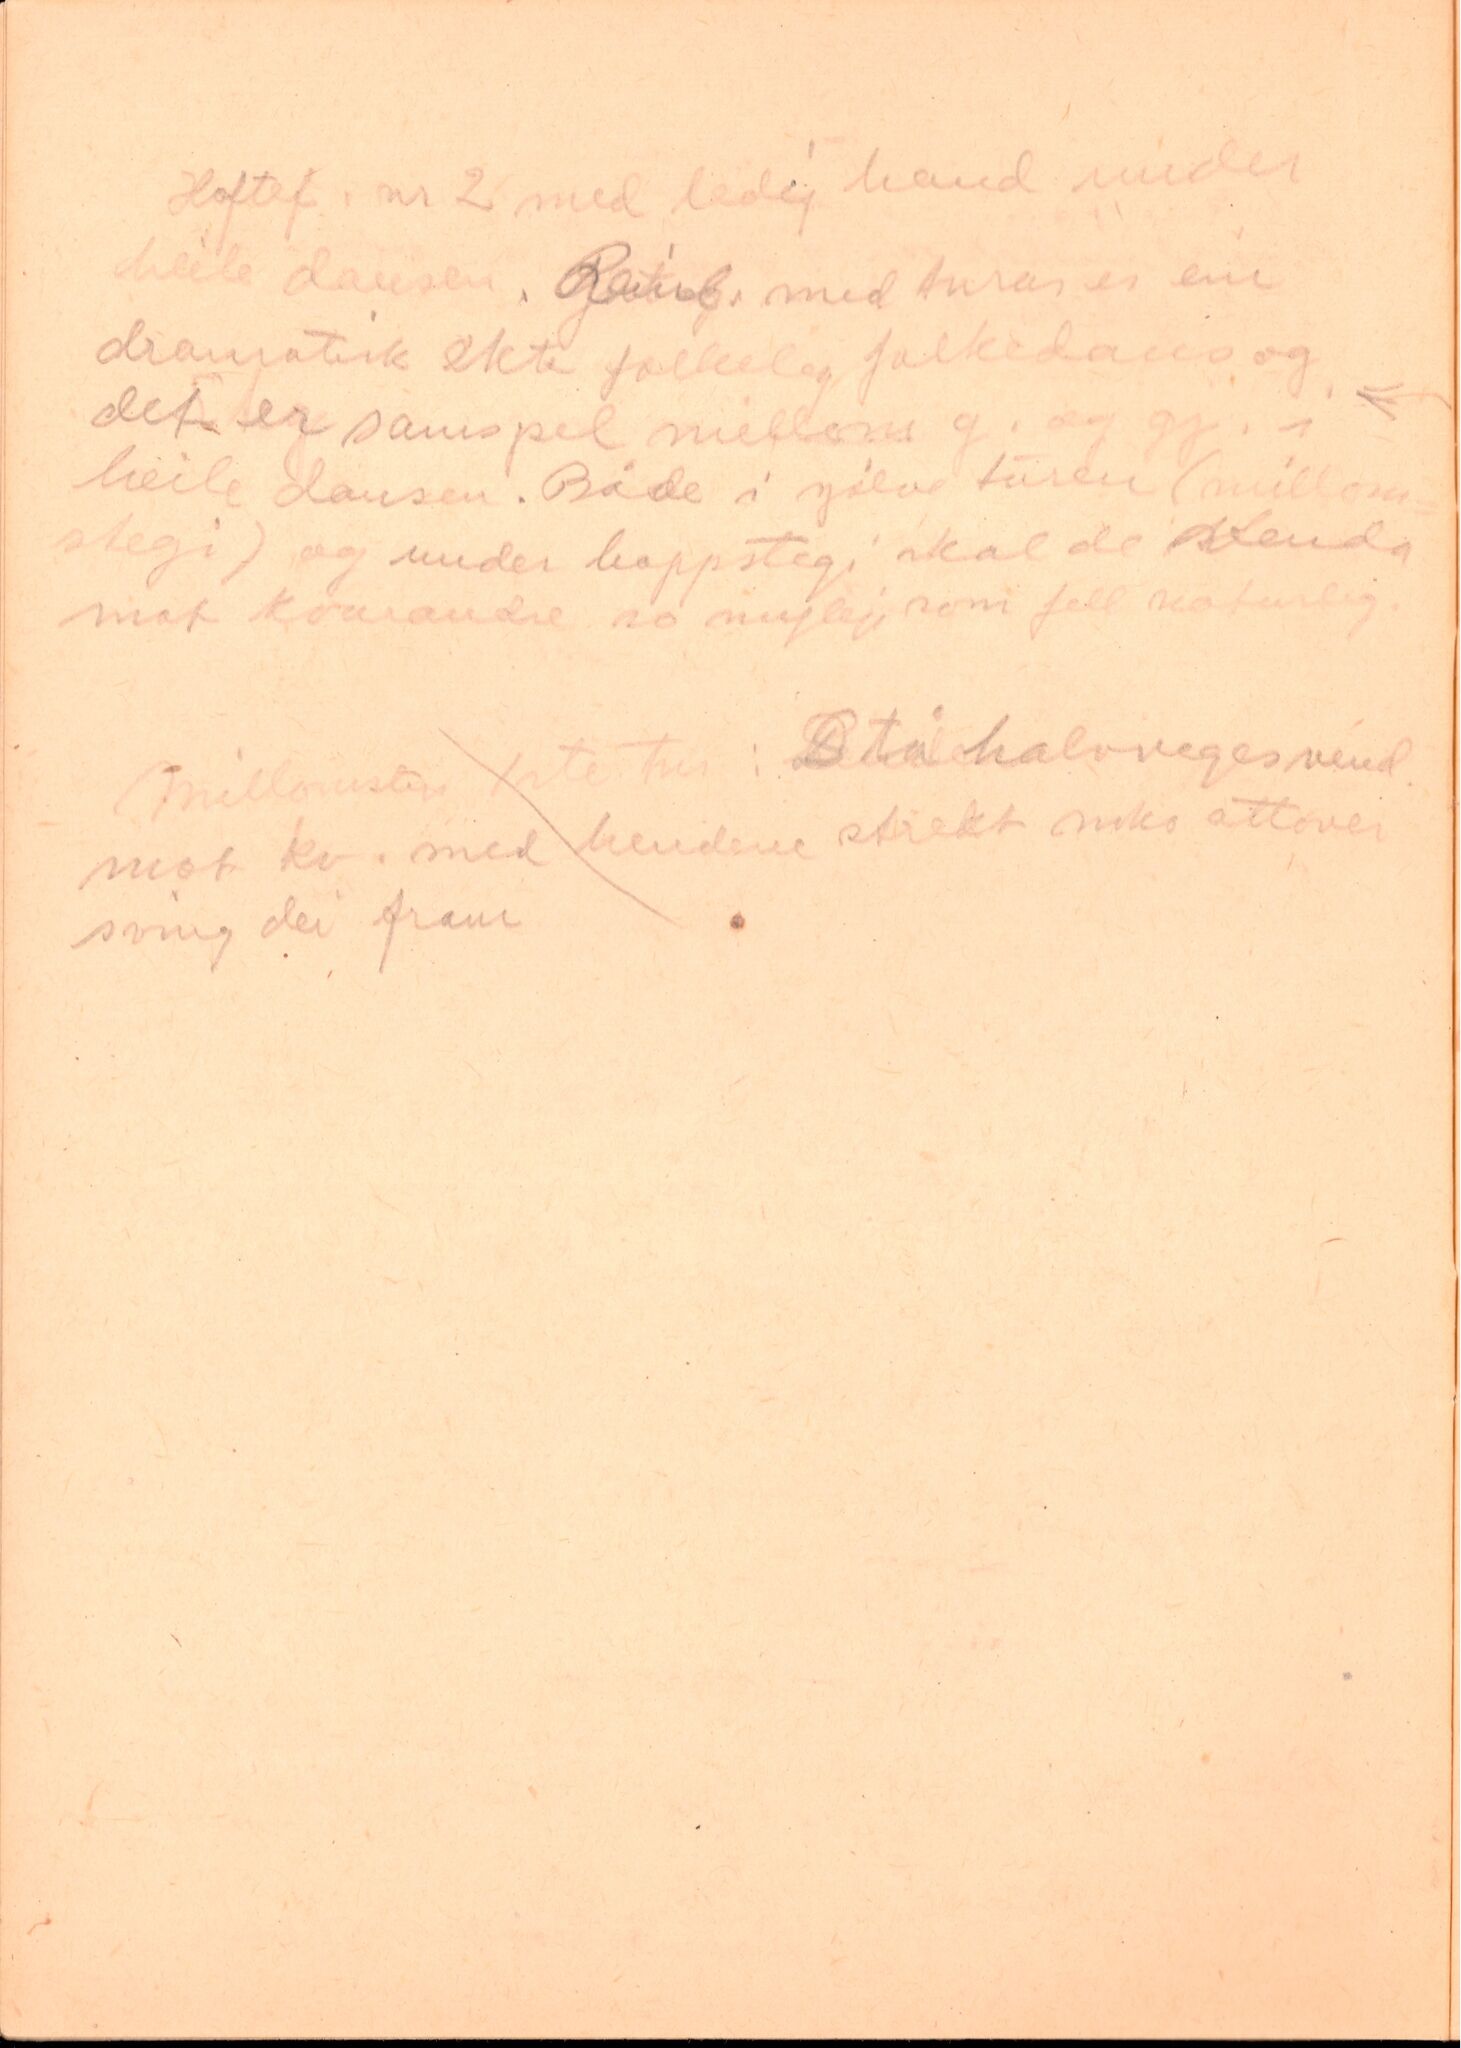 Hoftef. nr 2 med ledig hand under
heile dansen. Reinl. med turar er ein
dramatisk ekte folkeleg folkedans og
det er samspel millom g. og gj. i
heile dansen. Både i sjølve turen (millom-
stegi) og under hoppstegi skal de venda
mot kvarandre so mykje som fell naturleg.
Millomsteg 1ste tur: Stå halvveges vend
mot kv. med hendene strekt noko attover
sving dei fram